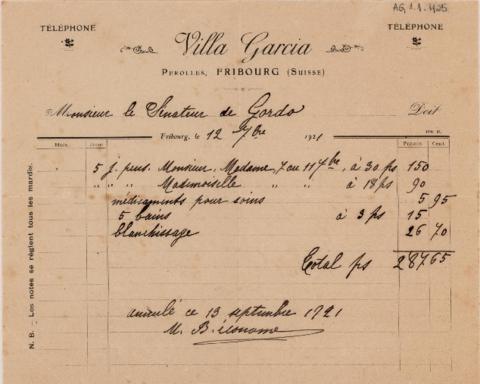 AG, 1.1.1425
TÉLÉPHONE
TÉLÉPHONE
Villa Garcia
PEROLLES, FRIBOURG (SUISSE)
Monsieur le Sénateur de Gordo Doit
Fribourg, le 12 7bre 1921
Mois. Jours Francs Cent.
5 j. pens. Monsieur, Madame, 7 au 11 7bre, à 30 fs 150
" " " Mademoiselle " " à 18 fs 90
médicaments pour soins 5 95
5 bains à 3 fs 15
blanchissage 26 70
Total fs 287 65
ce 13 septembre 1921
N. B. - Les notes se règlent tous les mardis.